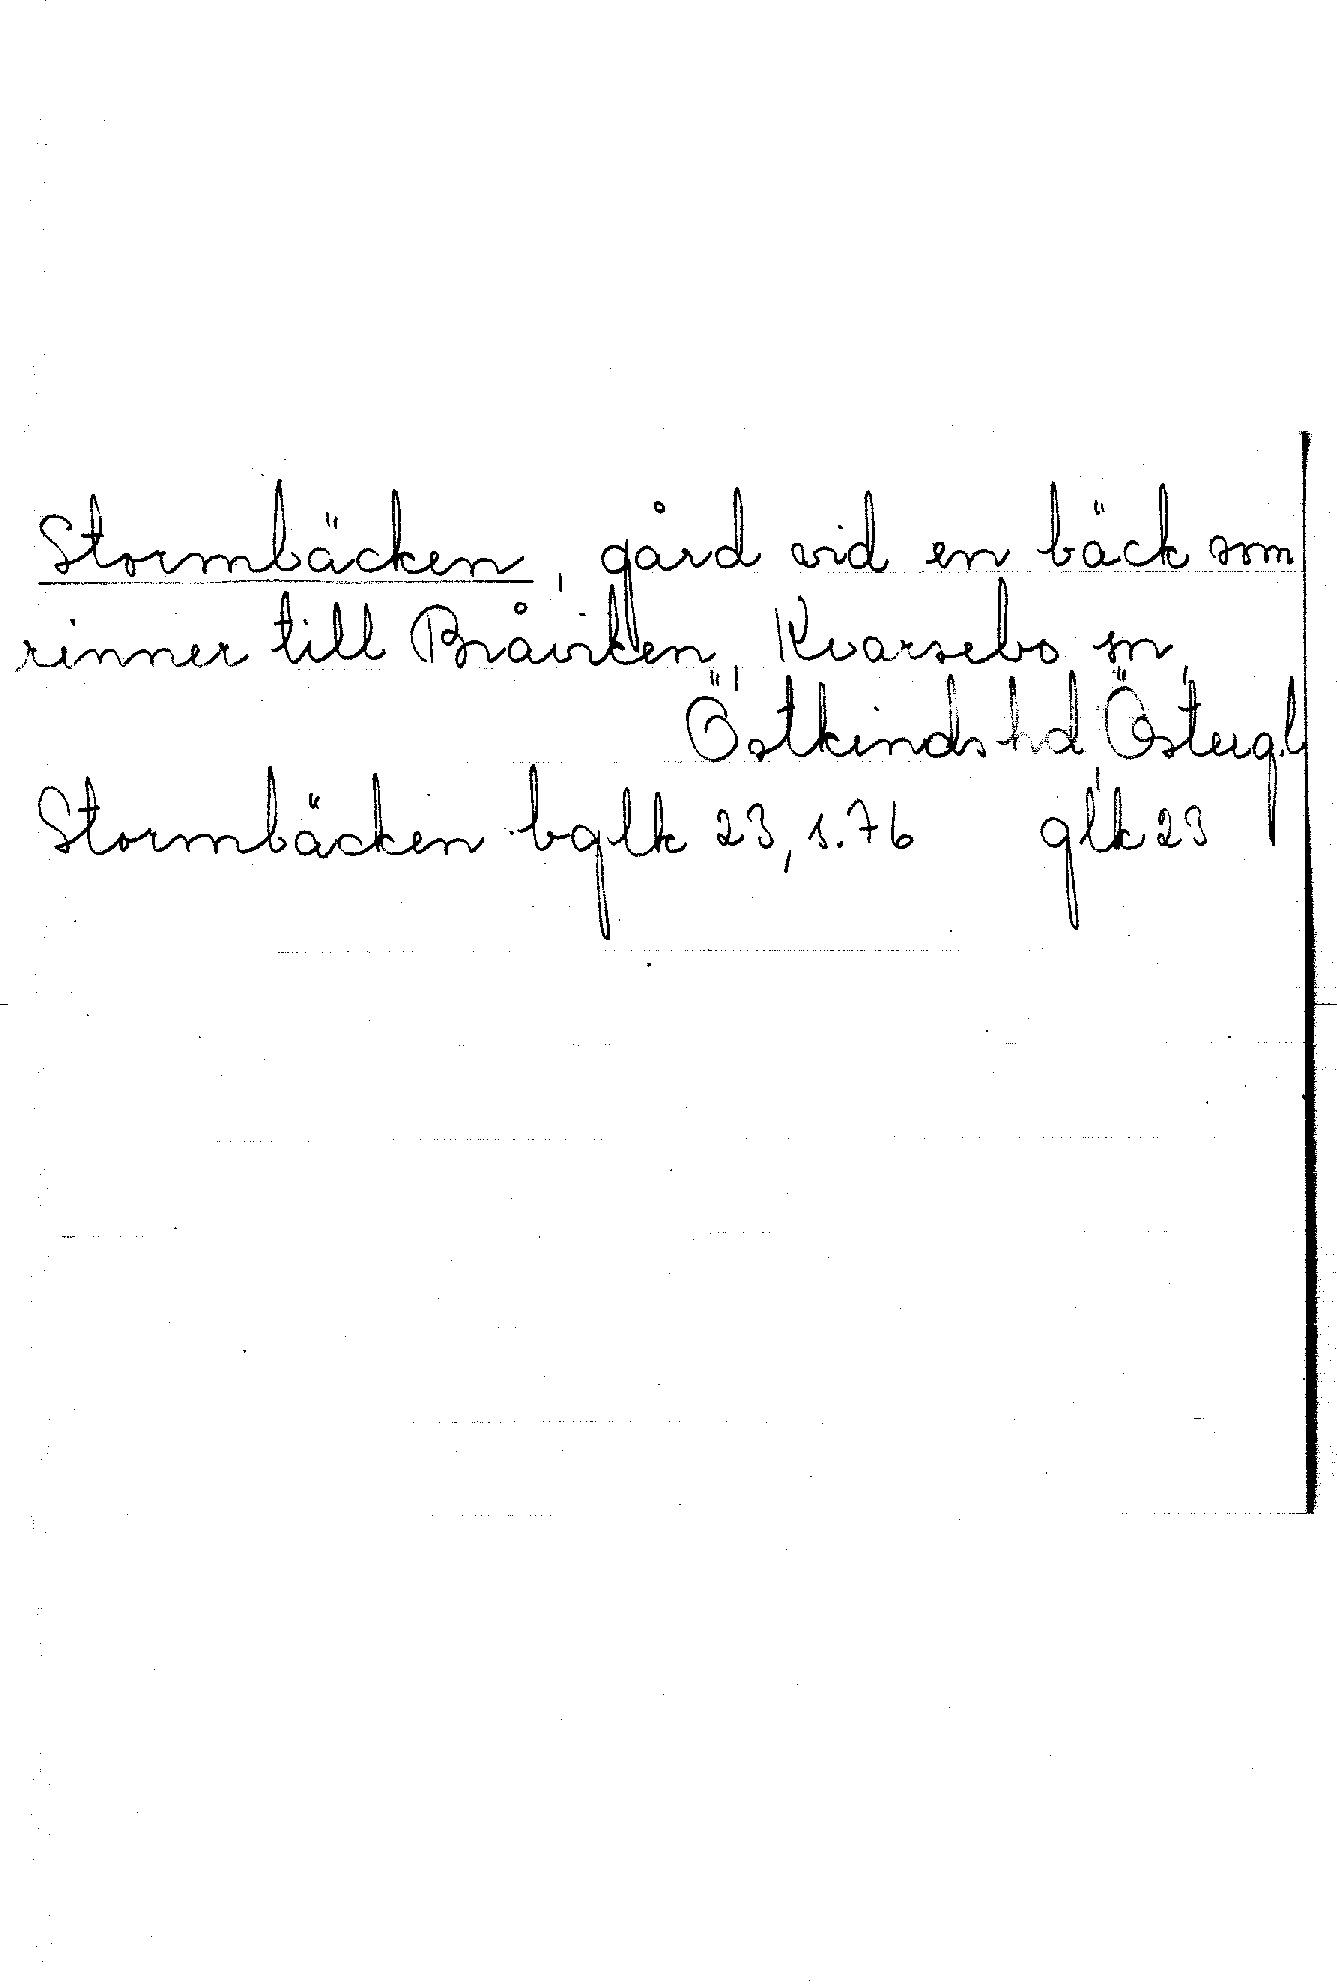 Stormbäcken, gård vid en bäck som
rinner till Bråviken, Kvarsebo sn,
Östkinds hd, Östergl.
Stormbäcken bglk 23, s. 76 glk 23